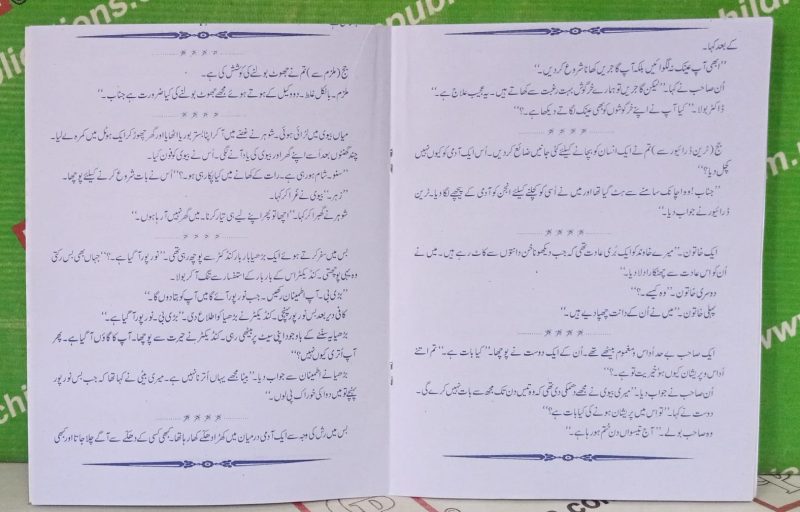 کے بعد کہا۔
’’ابھی آپ عینک نہ لگوائیں بلکہ آپ گاجریں کھانا شروع کر دیں۔‘‘
اُن صاحب نے کہا۔ ’’لیکن گاجریں تو ہمارے خرگوش بہت رغبت سے کھاتے ہیں۔ یہ عجیب علاج ہے۔‘‘
ڈاکٹر بولا۔ ’’کیا آپ نے اپنے خرگوشوں کو بھی عینک لگاتے دیکھا ہے۔؟‘‘
جج (ٹرین ڈرائیور سے) تم نے ایک انسان کو بچانے کیلئے کئی جانیں ضائع کر دیں۔ اُس ایک آدمی کو کیوں نہیں
کچل دیا؟‘‘
’’جناب! وہ اچانک سامنے سے ہٹ گیا تھا اور میں نے اُسی کو کچلنے کیلئے انجن کو آدمی کے پیچھے لگا دیا۔ ٹرین
ڈرائیور نے جواب دیا۔‘‘
ایک خاتون۔ ’’میرے خاوند کو ایک بُری عادت تھی کہ جب دیکھو ناخن دانتوں سے کاٹ رہے ہیں۔ میں نے
اُن کو اس عادت سے چھٹکارا دلا دیا۔‘‘
دوسری خاتون۔ ’’وہ کیسے۔؟‘‘
پہلی خاتون۔ ’’میں نے اُن کے دانت چھپا دیے ہیں۔‘‘
ایک صاحب بے حد اُداس و مغموم بیٹھے تھے۔ اُن کے ایک دوست نے پوچھا۔ ’’کیا بات ہے۔ تم اتنے
اُداس و پریشان کیوں ہو خیریت تو ہے۔؟‘‘
اُن صاحب نے جواب دیا۔ ’’میری بیوی نے مجھے دھمکی دی تھی کہ وہ تیس دن تک مجھ سے بات نہیں کرے گی۔
دوست نے کہا۔ ’’تو اس میں پریشان ہونے کی کیا بات ہے؟‘‘
وہ صاحب بولے۔ ’’آج تیسواں دن ختم ہو رہا ہے۔‘‘
جج (ملزم سے) تم نے جھوٹ بولنے کی کوشش کی ہے۔
ملزم۔ بالکل غلط۔ دو وکیل کے ہوتے ہوئے مجھے جھوٹ بولنے کی کیا ضرورت ہے جناب۔‘‘
میاں بیوی میں لڑائی ہوئی۔ شوہر نے غصّے میں آ کر اپنا بستر بوریا اٹھایا اور گھر چھوڑ کر ایک ہوٹل میں کمرہ لے لیا۔
چند گھنٹوں بعد اُسے اپنے گھر اور بیوی کی یاد آنے لگی۔ اُس نے بیوی کو فون کیا۔
’’سنو۔ شام ہو رہی ہے۔ رات کے کھانے میں کیا پکا رہی ہو۔؟‘‘ اُس نے بات شروع کرنے کیلئے پوچھا۔
’’زہر۔‘‘ بیوی نے غرا کر کہا۔
شوہر نے گھبرا کر کہا۔ ’’اچھا تو پھر اپنے لیے ہی تیار کرنا۔ میں گھر نہیں آ رہا ہوں۔‘‘
بس میں سفر کرتے ہوئے ایک بڑھیا بار بار کنڈکٹر سے پوچھ رہی تھی۔ ’’نور پور آ گیا ہے۔؟‘‘ جہاں بھی بس رکتی
وہ یہی پوچھتی۔ کنڈیکٹر اس کے بار بار کے استفسار سے تنگ آ کر بولا۔
’’بڑی بی۔ آپ اطمینان رکھیں۔ جب نور پور آئے گا میں آپ کو بتا دوں گا۔‘‘
کافی دیر بعد بس نور پور پہنچی۔ کنڈیکٹر نے بڑھیا کو اطلاع دی۔ ’’بڑی بی۔ نور پور آ گیا ہے۔‘‘
بڑھیا یہ سننے کے باوجود اپنی سیٹ پر بیٹھی رہی۔ کنڈیکٹر نے حیرت سے پوچھا۔ آپ کا گاؤں آ گیا ہے۔ پھر
آپ اُتری کیوں نہیں؟‘‘
بڑھیا نے اطمینان سے جواب دیا۔ ’’بیٹا مجھے یہاں اُترنا نہیں ہے۔ میری بیٹی نے کہا تھا کہ جب بس نور پور
پہنچے تو میں دوا کی خوراک پی لوں۔‘‘
بس میں رش کی وجہ سے ایک آدمی درمیان میں کھڑا دھکّے کھا رہا تھا۔ کبھی کسی کے دھکّے سے آگے چلا جاتا اور کبھی